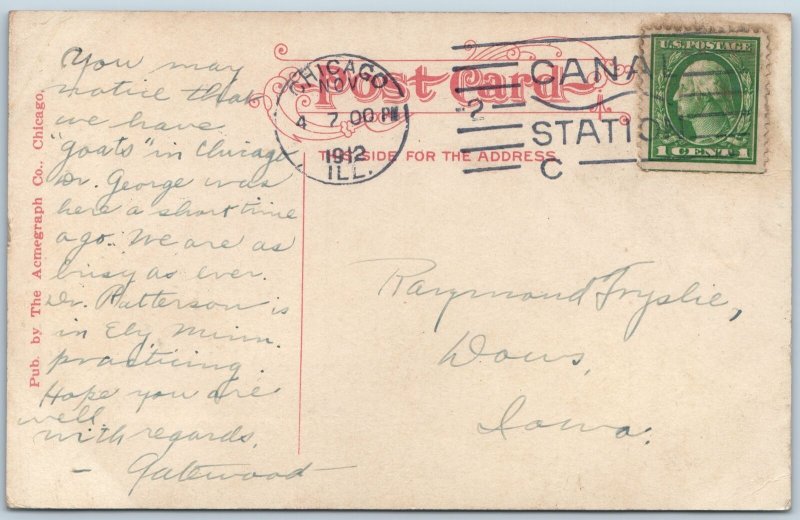 You may
notice that
we have
"goats" in Chicago
Dr. George was
here a short time
ago. We are as
busy as ever.
Dr. Patterson is
in Ely Minn.
practicing.
Hope you are
well
with regards,
— Gatewood
Pub. by The Acmegraph Co., Chicago.
Post Card
THIS SIDE FOR THE ADDRESS.
CHICAGO
NOV
4 7 00 PM
1912
ILL.
CANAL
2
STATIO
C
U.S. POSTAGE
1 CENT 1
Raymond Fryslie,
Dows,
Iowa.